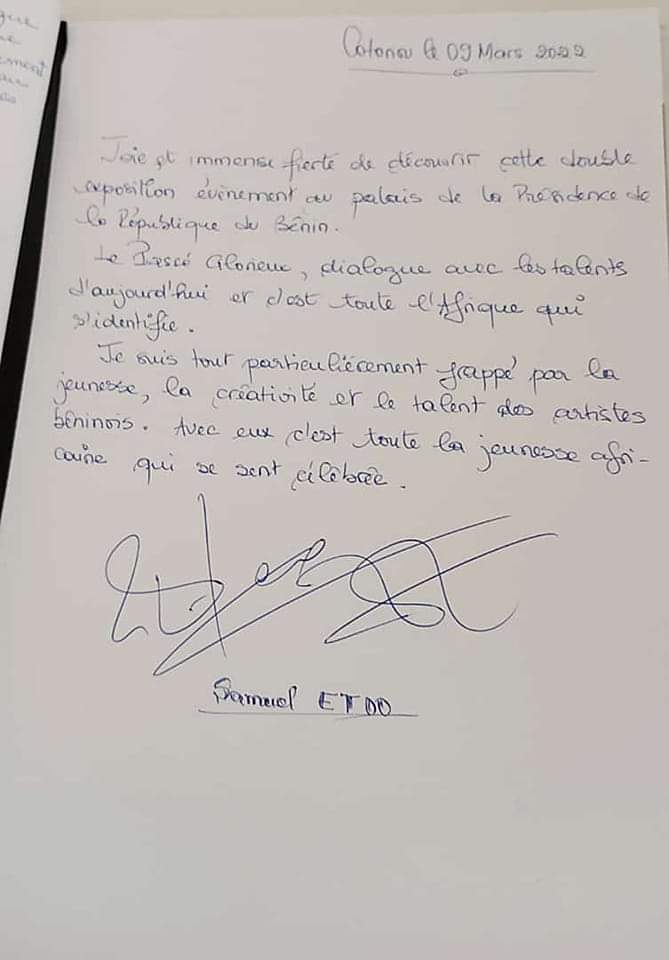 Cotonou le 09 Mars 2022
Joie et immense fierté de découvrir cette double
exposition évènement au palais de la Présidence de
la République du Bénin.
Le Passé Glorieux, dialogue avec les talents
d'aujourd'hui et c'est toute l'Afrique qui
s'identifie.
Je suis tout particulièrement frappé par la
jeunesse, la créativité et le talent des artistes
béninois. Avec eux c'est toute la jeunesse afri-
caine qui se sent célébrée.
Samuel ETOO